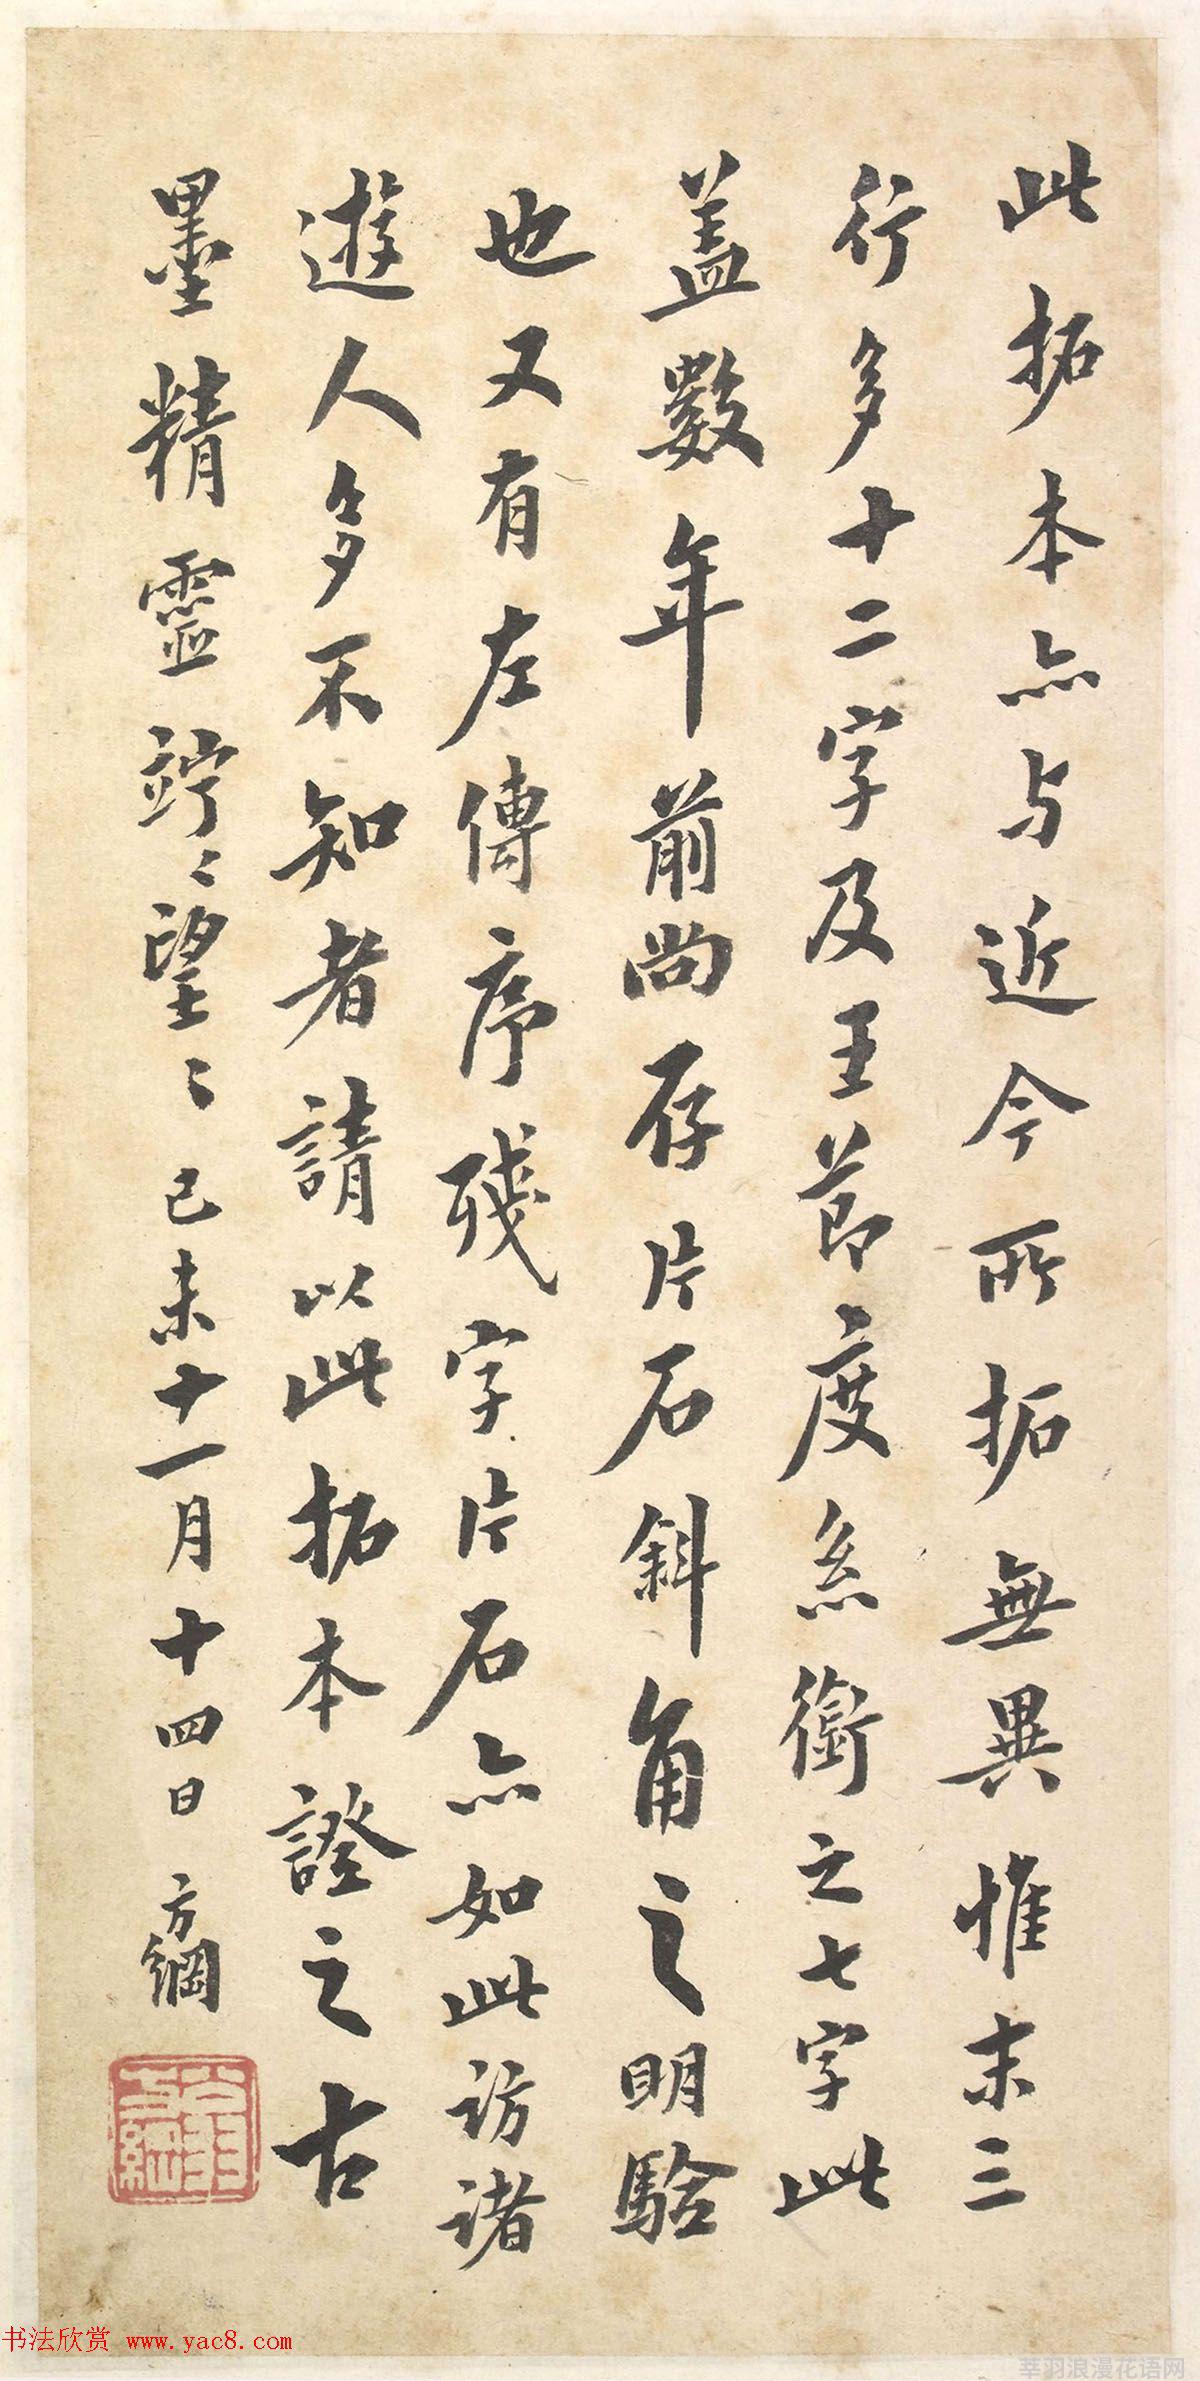 此拓本亦与近今所拓無異惟末三
行多十二字及王節度系銜之七字此
盖數年前尚存片石斜角之明驗
也又有左傳序殘字片石亦如此訪諸
遊人多不知者請以此拓本證之古
墨精靈竚〻望〻己未十一月十四日方綱
翁方綱
书法欣赏 www.yac8.com
莘羽浪漫花语网